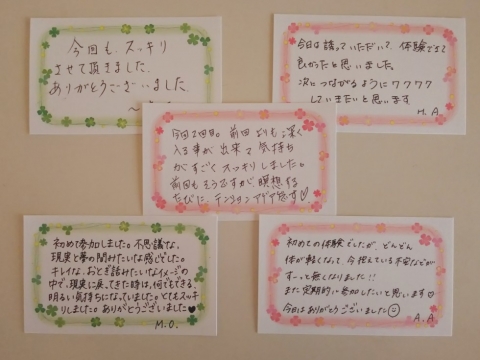 今回も、スッキリ
させて頂きました。
ありがとうございました。
今日は誘っていただいて、体験できて
良かったと思いました。
次につながるようにワクワク
していきたいと思います
M.A
今回で2回目。前回よりも深く
入る事が出来て気持ち
がすごくスッキリしました。
前回もそうですが、瞑想する
たびに、テンションアゲアゲです♡
初めて参加しました。不思議な、
現実と夢の間みたいな感じでした。
キレイな、おとぎ話みたいなイメージの
中で、現実に戻ってきた時は、何でもできる、
明るい気持ちになっていました。とてもスッキ
リしました。ありがとうございました♥
M.O.
初めての体験でしたが、どんどん
体が軽くなって、今抱えている不安などが
すーっと無くなりました!!
また定期的に参加したいと思います♡
今日はありがとうございました☺
A.A